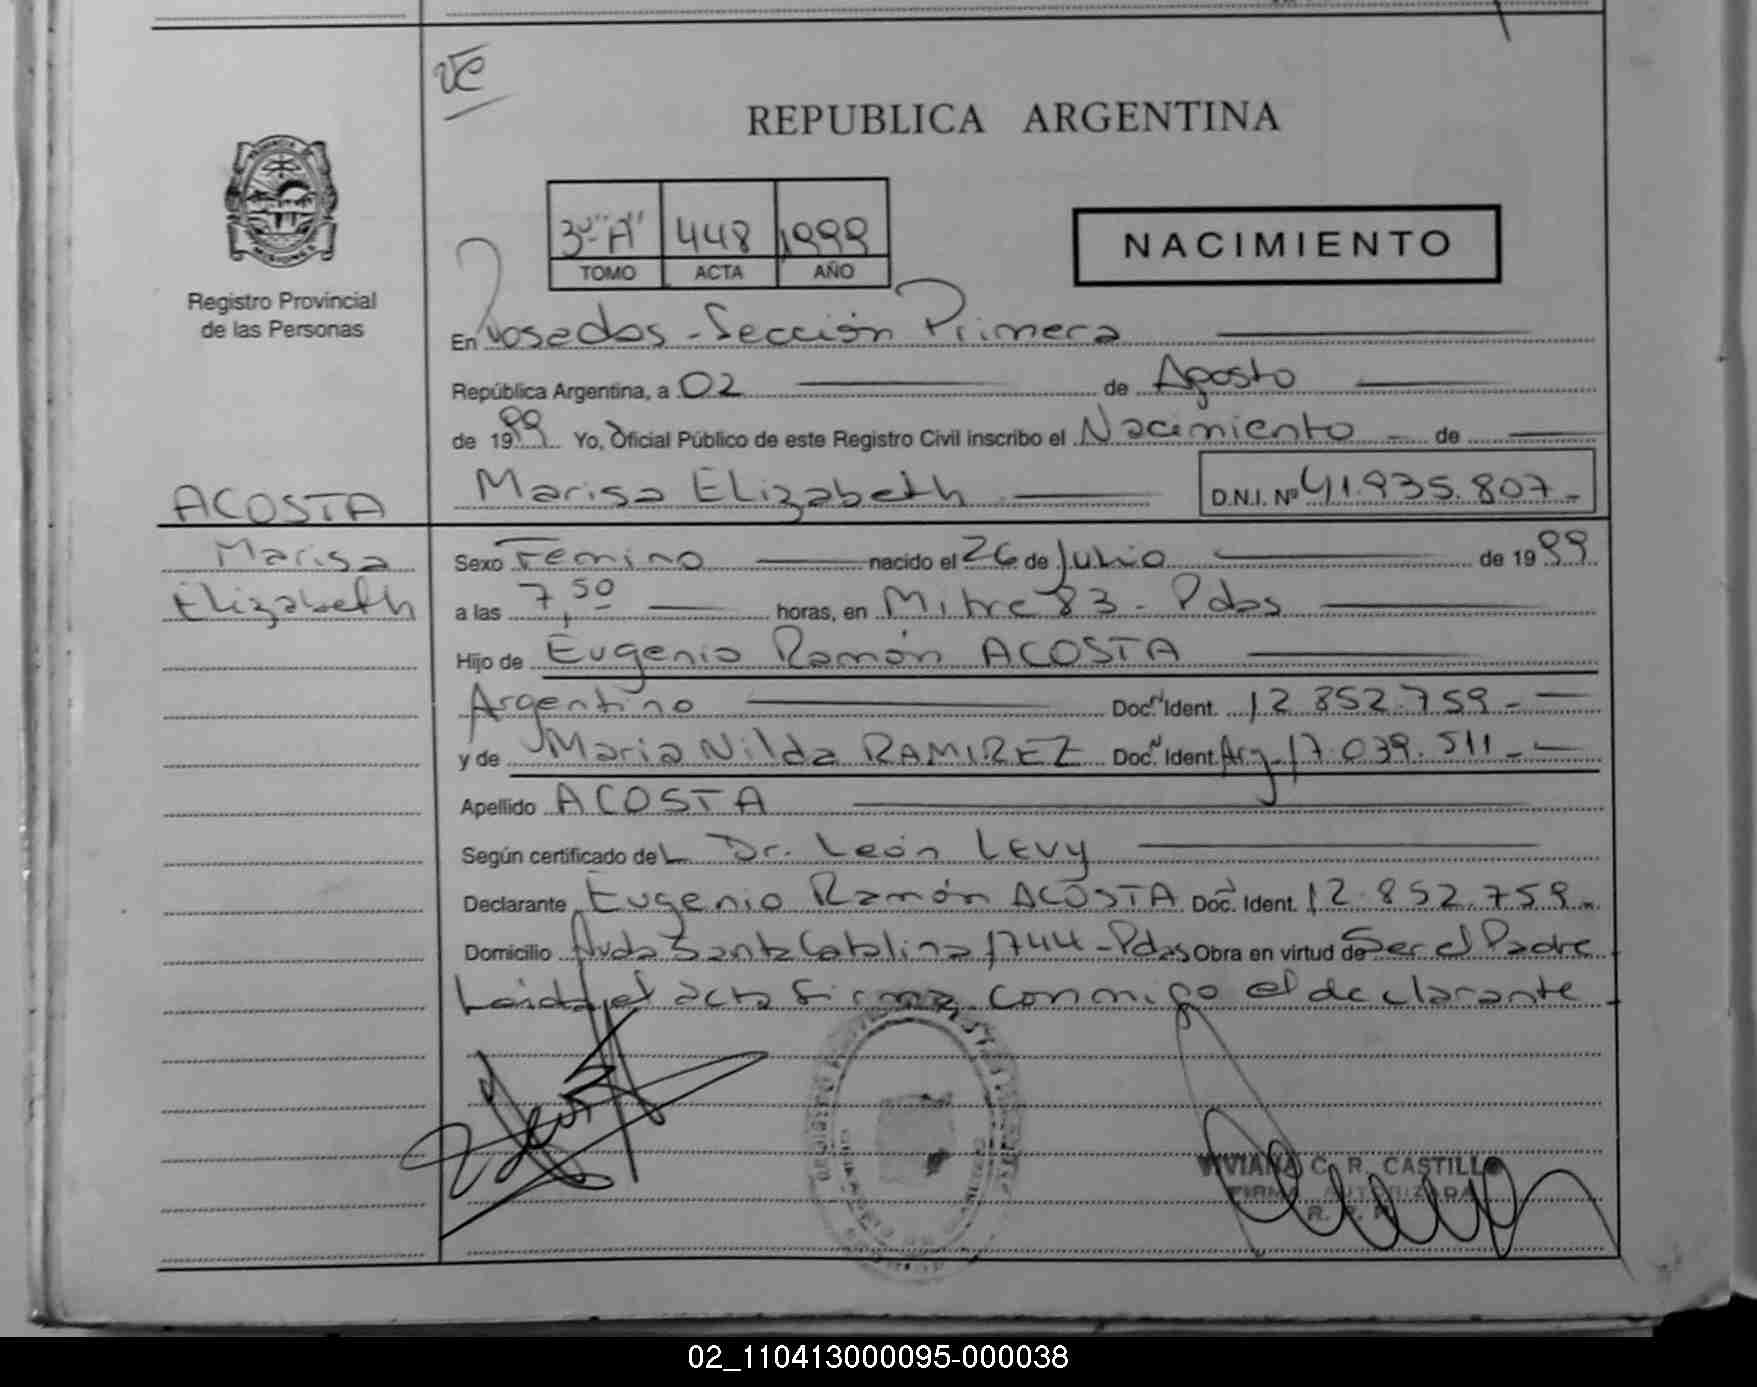 VC
REPUBLICA ARGENTINA
3º "A" 448 1999
TOMO ACTA AÑO
NACIMIENTO
Registro Provincial
de las Personas
En Posadas - Sección Primera
República Argentina, a 02 de Agosto
de 1999 Yo, Oficial Público de este Registro Civil inscribo el Nacimiento - de
Marisa Elizabeth D.N.I. Nº 41.935.807-
ACOSTA
Marisa
Elizabeth
Sexo Femino nacido el 26 de Julio de 1999
a las 7,50 horas, en Mitre 83 - Pdas
Hijo de Eugenio Ramón ACOSTA
Argentino Doc. Ident. 12.852.759-
y de Maria Nilda RAMIREZ Doc. Ident. Arg. 17.039.511-
Apellido ACOSTA
Según certificado del Dr. León Levy
Declarante Eugenio Ramón ACOSTA Doc. Ident. 12.852.759-
Domicilio Avda Santa Catalina 1744 - Pdas Obra en virtud de Ser el Padre
Leida el acta firma conmigo el declarante
VIVIANA C. R. CASTILLO
FIRMA AUTORIZADA
R. P. P.
02_110413000095-000038